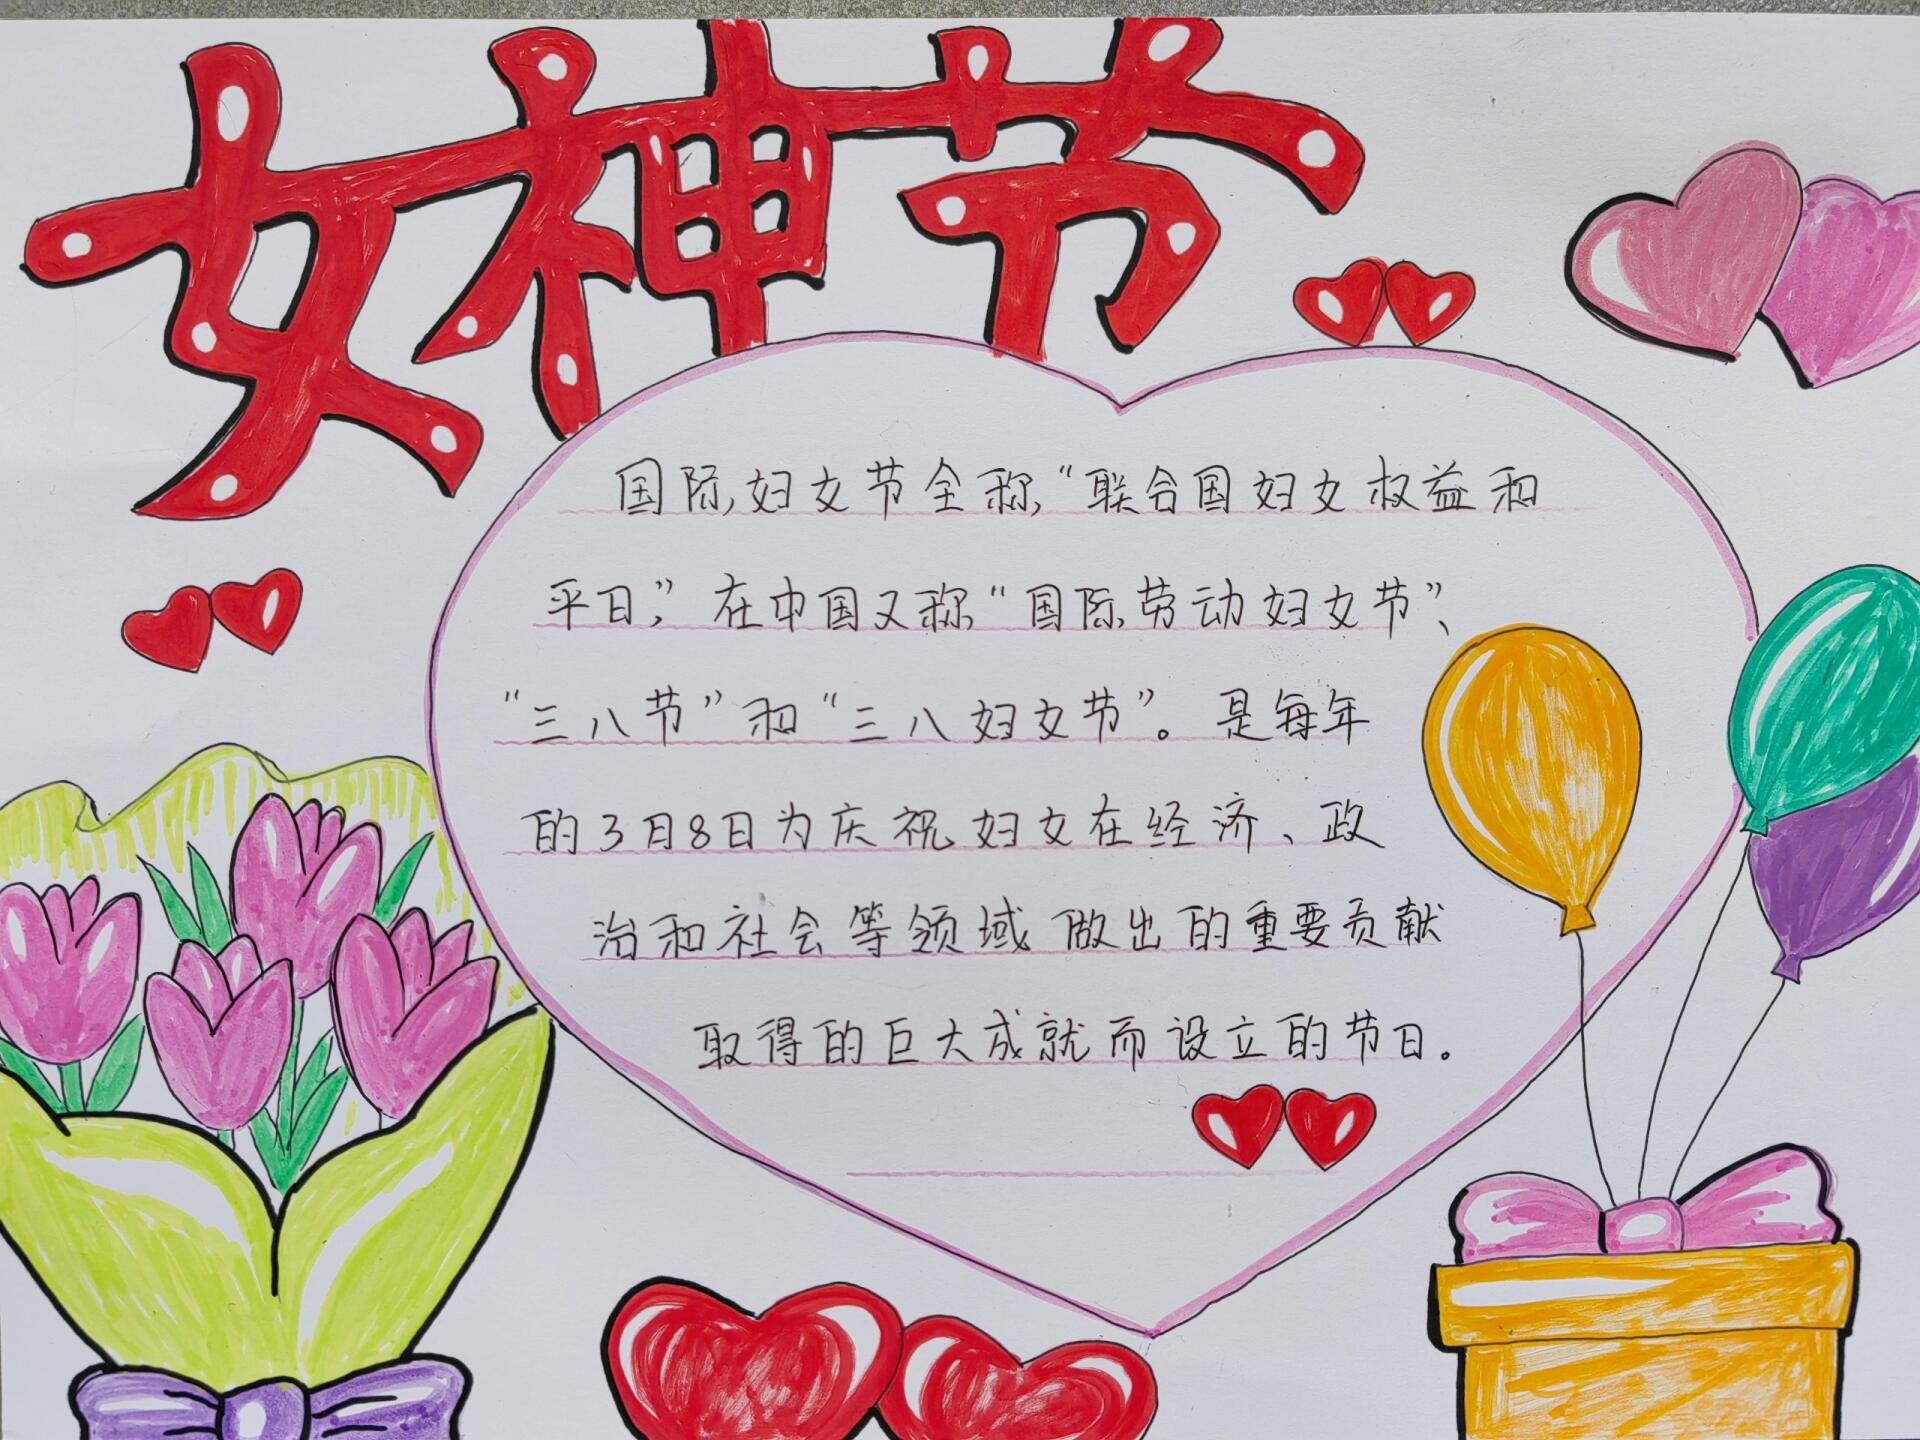 女神节
国际妇女节全称“联合国妇女权益和
平日”，在中国又称“国际劳动妇女节”、
“三八节”和“三八妇女节”。是每年
的3月8日为庆祝妇女在经济、政
治和社会等领域做出的重要贡献
取得的巨大成就而设立的节日。